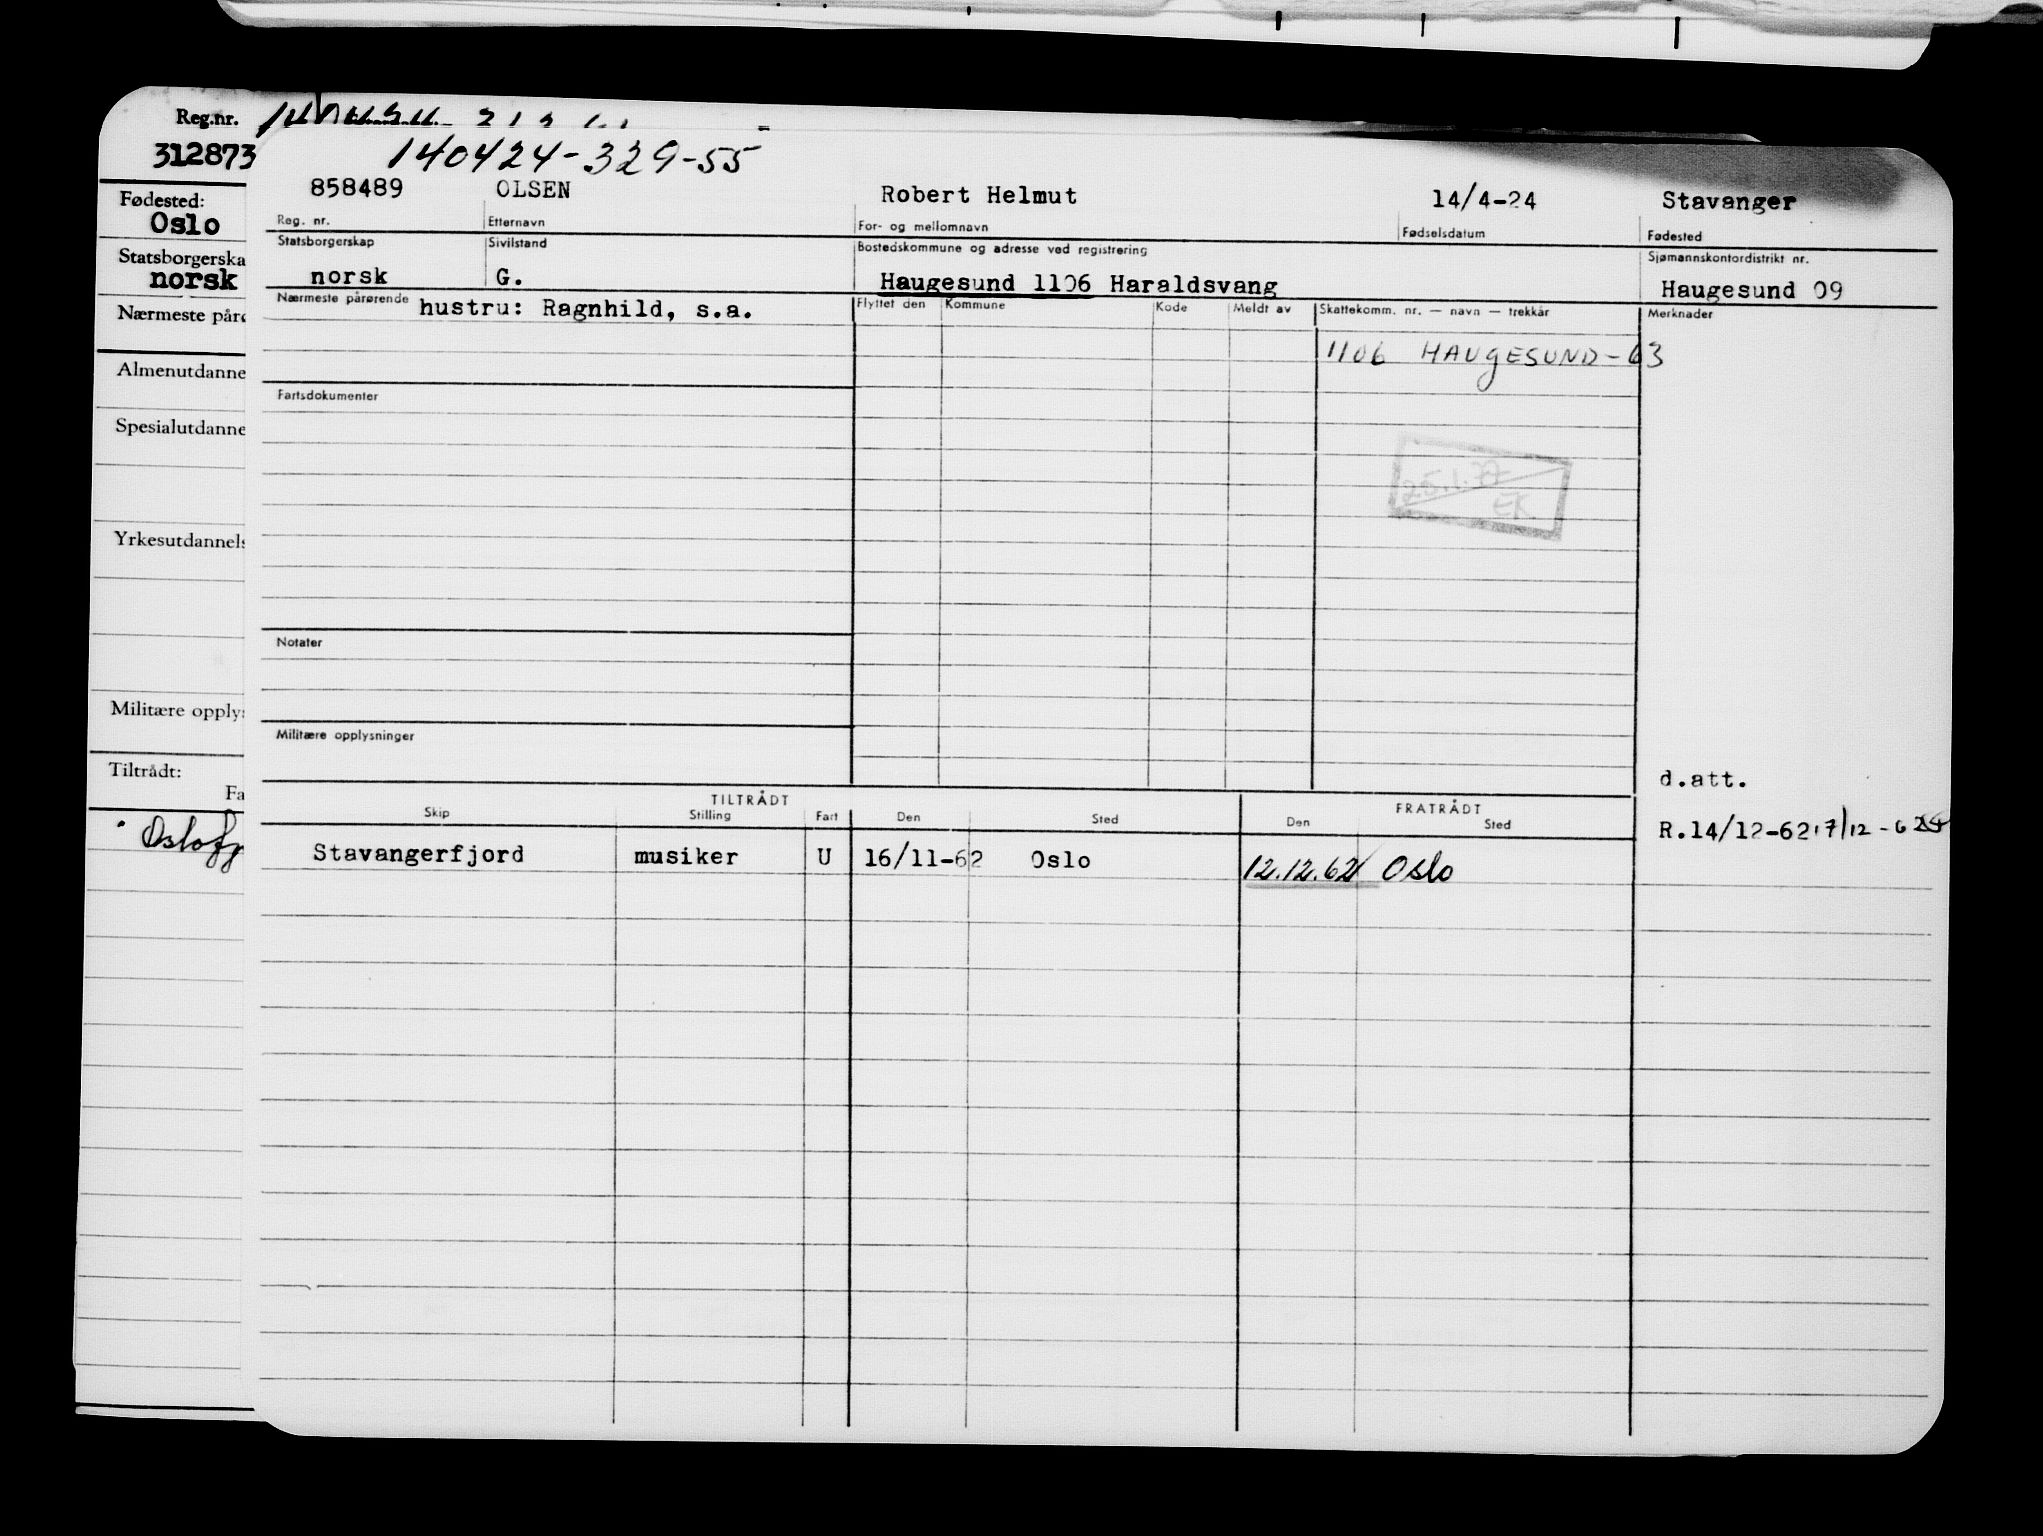 Reg.nr.
312873
Fødested:
Oslo
Statsborgerska
norsk
Nærmeste pårø
Almenutdanne
Spesialutdanne
Yrkesutdannels
Militære opplys
Tiltrådt:
Fa
Oslofj
140424-329-55
858489 OLSEN Robert Helmut 14/4-24 Stavanger
Reg. nr. Etternavn For- og mellomnavn Fødselsdatum Fødested
Statsborgerskap Sivilstand Bostedskommune og adresse ved registrering Sjømannskontordistrikt nr.
norsk G. Haugesund 1106 Haraldsvang Haugesund 09
Nærmeste pårørende hustru: Ragnhild, s.a. Flyttet den Kommune Kode Meldt av Skattekomm. nr. — navn — trekkår Merknader
1106 HAUGESUND-63
Fartsdokumenter
25.1.77
EK
Notater
Militære opplysninger
d.att.
TILTRÅDT FRATRÅDT
Skip Stilling Fart Den Sted Den Sted
R.14/12-62 17/12-62
Stavangerfjord musiker U 16/11-62 Oslo 12.12.62 Oslo